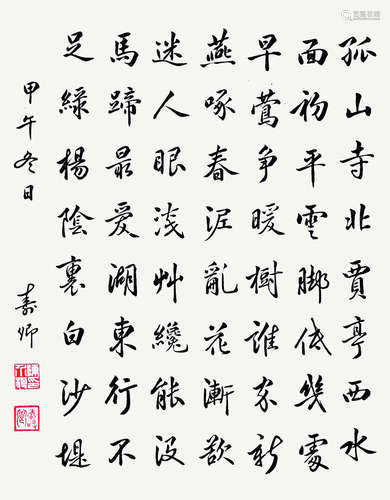 孤山寺北賈亭西水
面初平雲脚低幾處
早鶯争暖樹誰家新
燕啄春泥亂花漸欲
迷人眼淺艸纔能没
馬蹄最愛湖東行不
足綠楊陰裏白沙堤
甲午冬日 壽卿